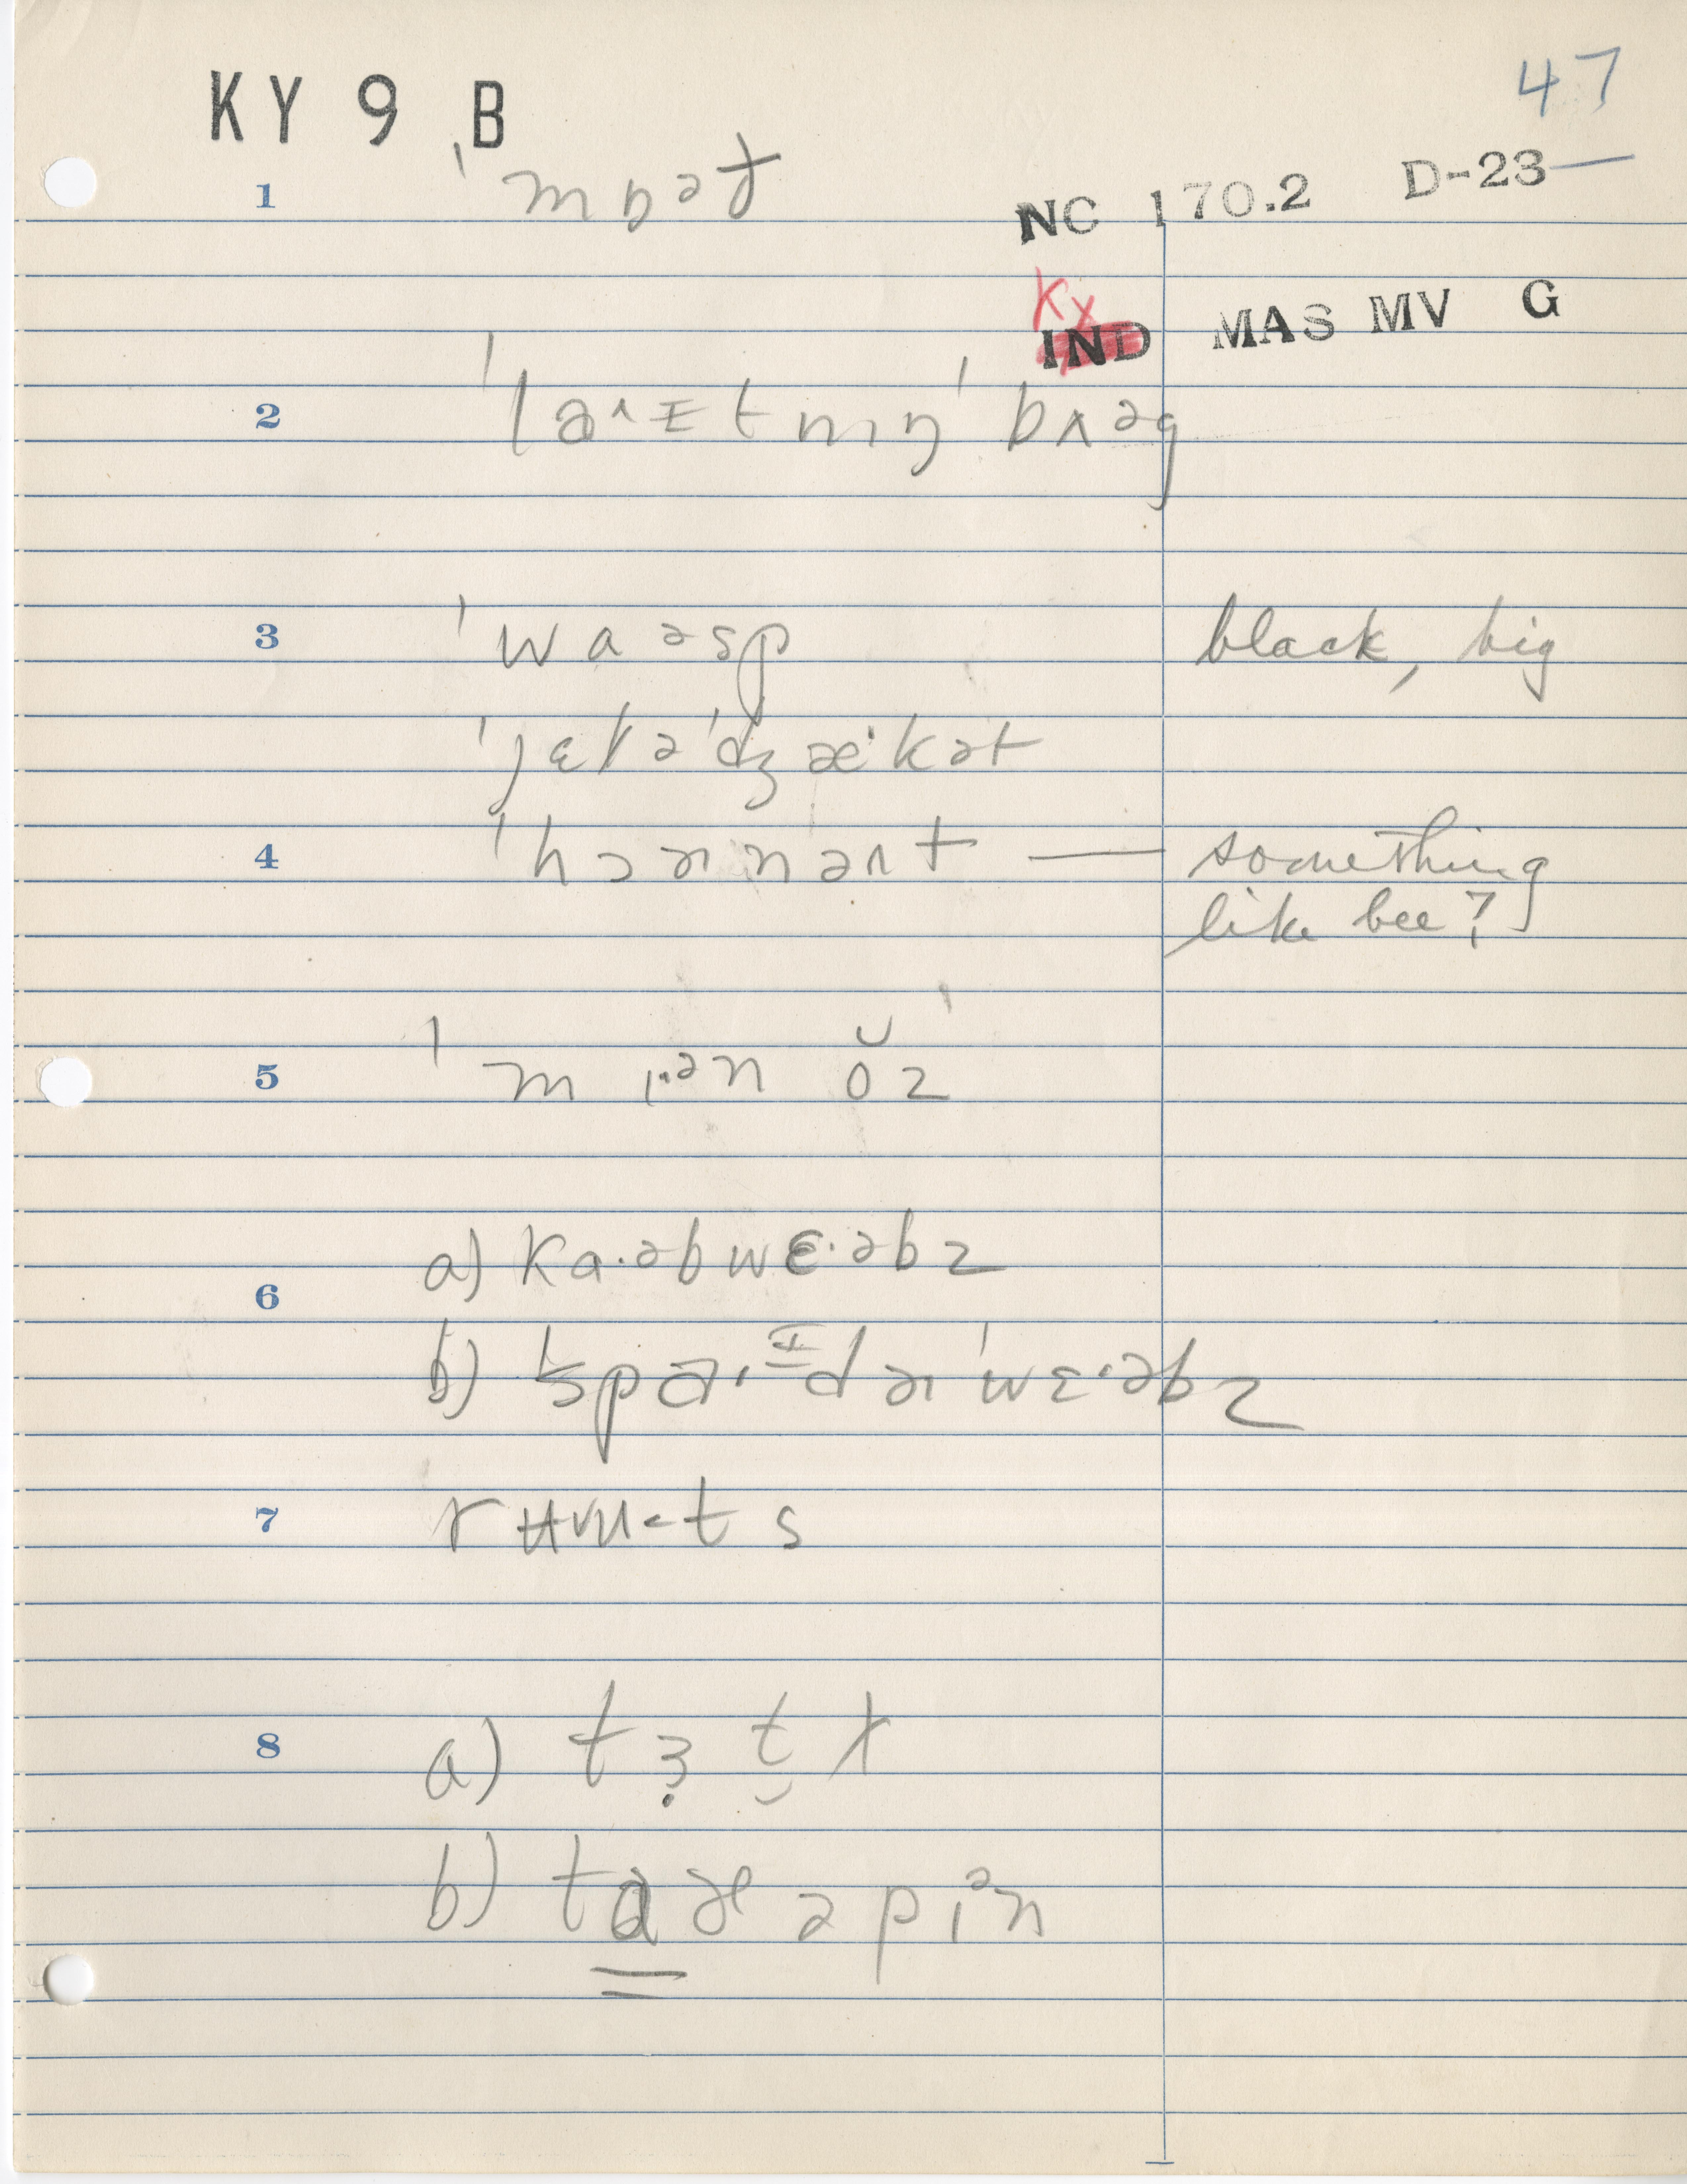 47
KY 9 B
NC 170.2 D-23—
Kx
IND MAS MV G
1 ˈmɒəθ
2 ˈlaˑɪtnɪŋˈbʌəg
3 ˈwɑəsp black, big
ˈjɛləˈdʒækət
4 ˈhɔɚnɚt — something
like bee?
5 ˈmɪˑənŏz
6 a) kɑ·əbwɛ·əbz
b) spaˑɪdɚˈwɛ·əbz
7 rʉuts
8 a)
b) əpɪən